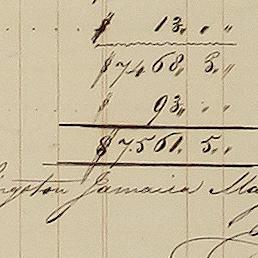 $ 13 „ „
$ 7468 „ 3 „
$ 93 „ „
$ 7.561 „ 5 „
ngston Jamaica Ma